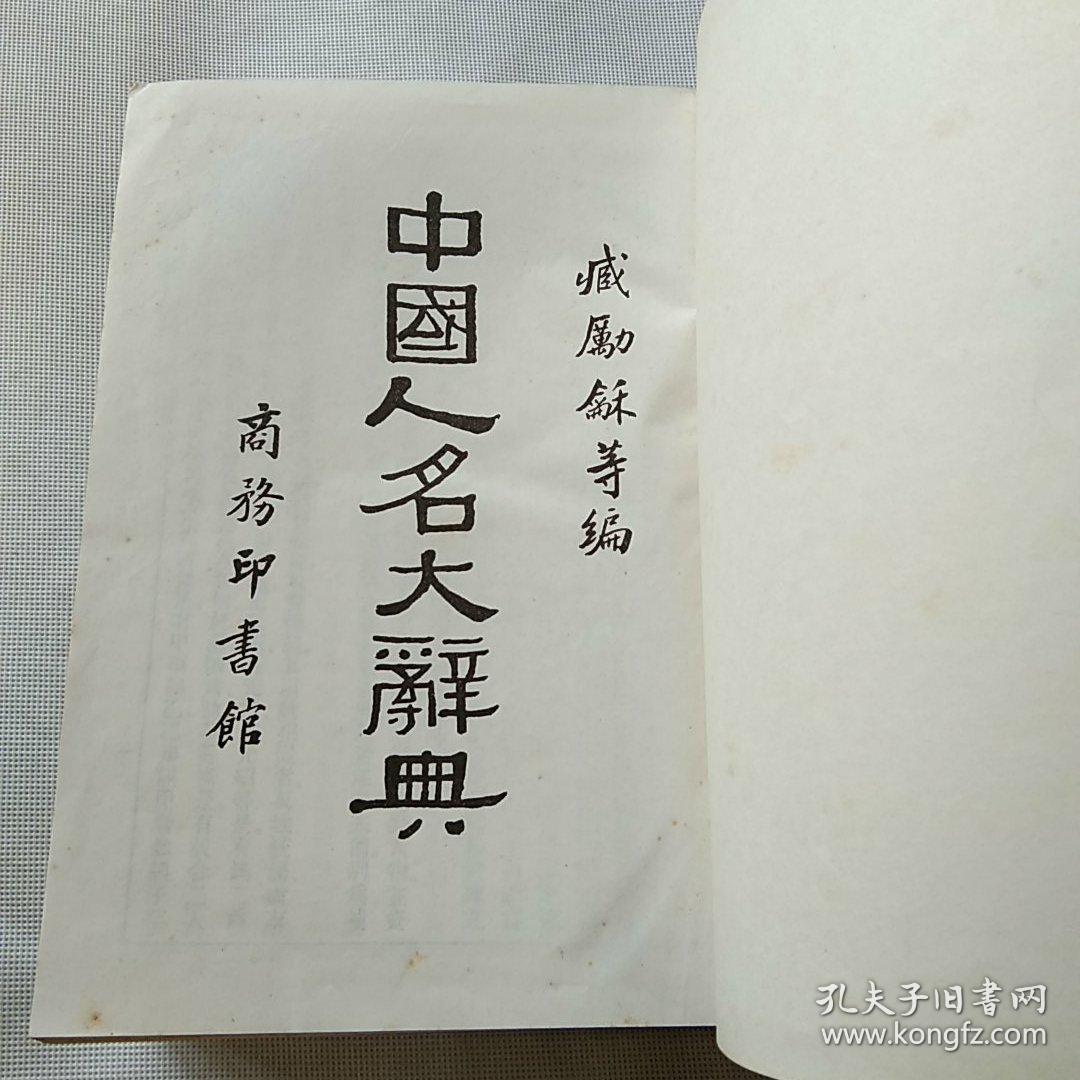 臧勵龢等編
中國人名大辭典
商務印書館
孔夫子旧书网
www.kongfz.com